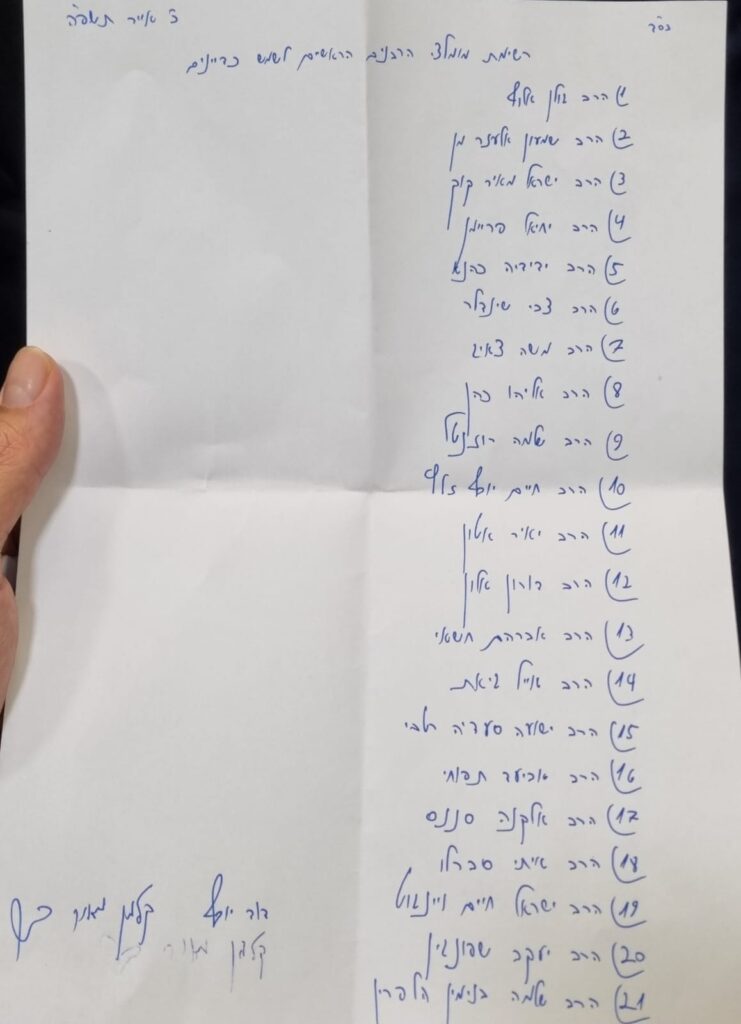 בס"ד
ג' אייר תשפ"ה
רשימת מומלצי הרבנים הראשים לשמש כדיינים
1) הרב גולן אלוף
2) הרב שמעון אלעזר מן
3) הרב ישראל מאיר קוק
4) הרב יחיאל פריימן
5) הרב ידידיה כהנא
6) הרב צבי שינדלר
7) הרב משה צאיג
8) הרב אליהו כהן
9) הרב שלמה רוזנטל
10) הרב חיים יוסף זלף
11) הרב יאיר אטון
12) הרב דורון אלון
13) הרב אברהם חשאי
14) הרב אייל גיאת
15) הרב ישועה סעדיה רטבי
16) הרב אביעד תפוחי
17) הרב אלקנה סננס
18) הרב איתי סברלו
19) הרב ישראל חיים ויינגוט
20) הרב יעקב שפונגין
21) הרב שלמה בנימין הלפרין
דוד יוסף קלמן מאיר בר
קלמן מאיר